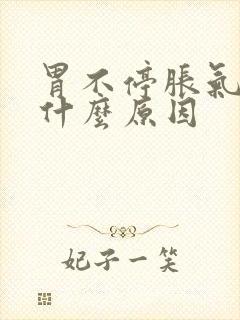 胃不停脹氣
什麼原因
妃子一笑